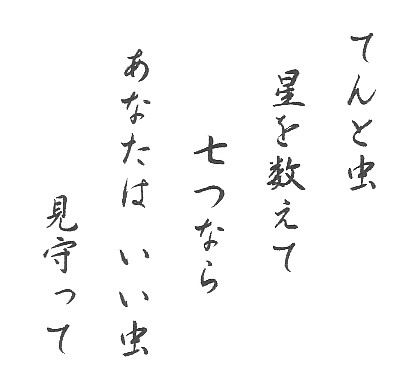 てんと虫
星を数えて
七つなら
あなたは いい虫
見守って